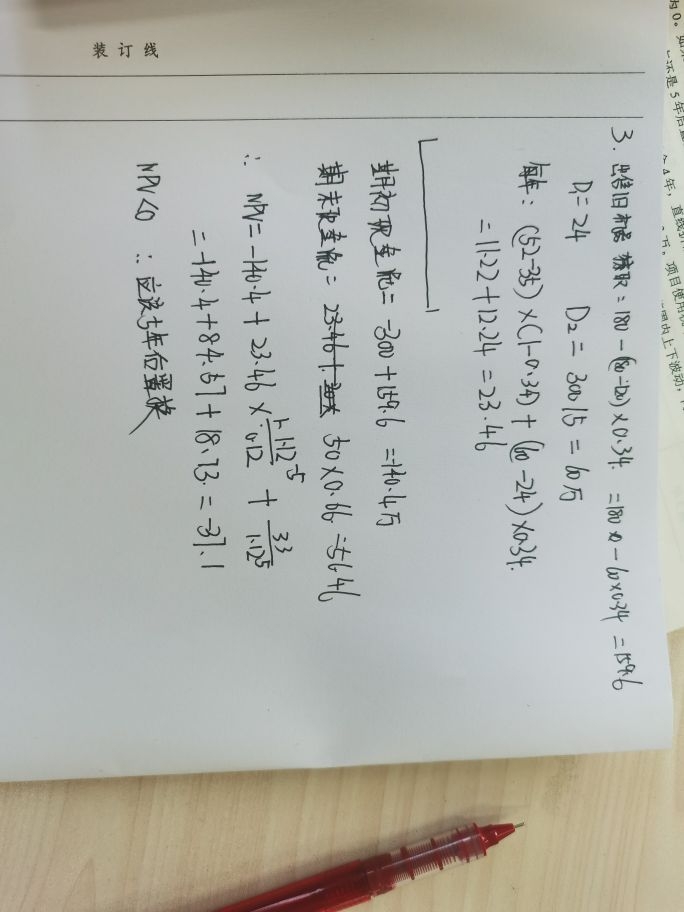 装订线
3. 出售旧机器 获取 = 180 - (180-120) × 0.34 = 180 - 60×0.34 = 159.6
D₁ = 24 D₂ = 300/5 = 60万
每年: (52-35) × (1-0.34) + (60-24) × 0.34
= 11.22 + 12.24 = 23.46
期初现金流 = -300 + 159.6 = -140.4万
期末现金流 = 50 × 0.66 = 56.46
∴ NPV = -140.4 + 23.46 × (1-1.12⁻⁵)/0.12 + 33/1.12⁵
= -140.4 + 84.57 + 18.73 = -37.1
NPV<0 ∴ 应该5年后置换
为0。
还是5年后
直线折
项目使用
上下波动,